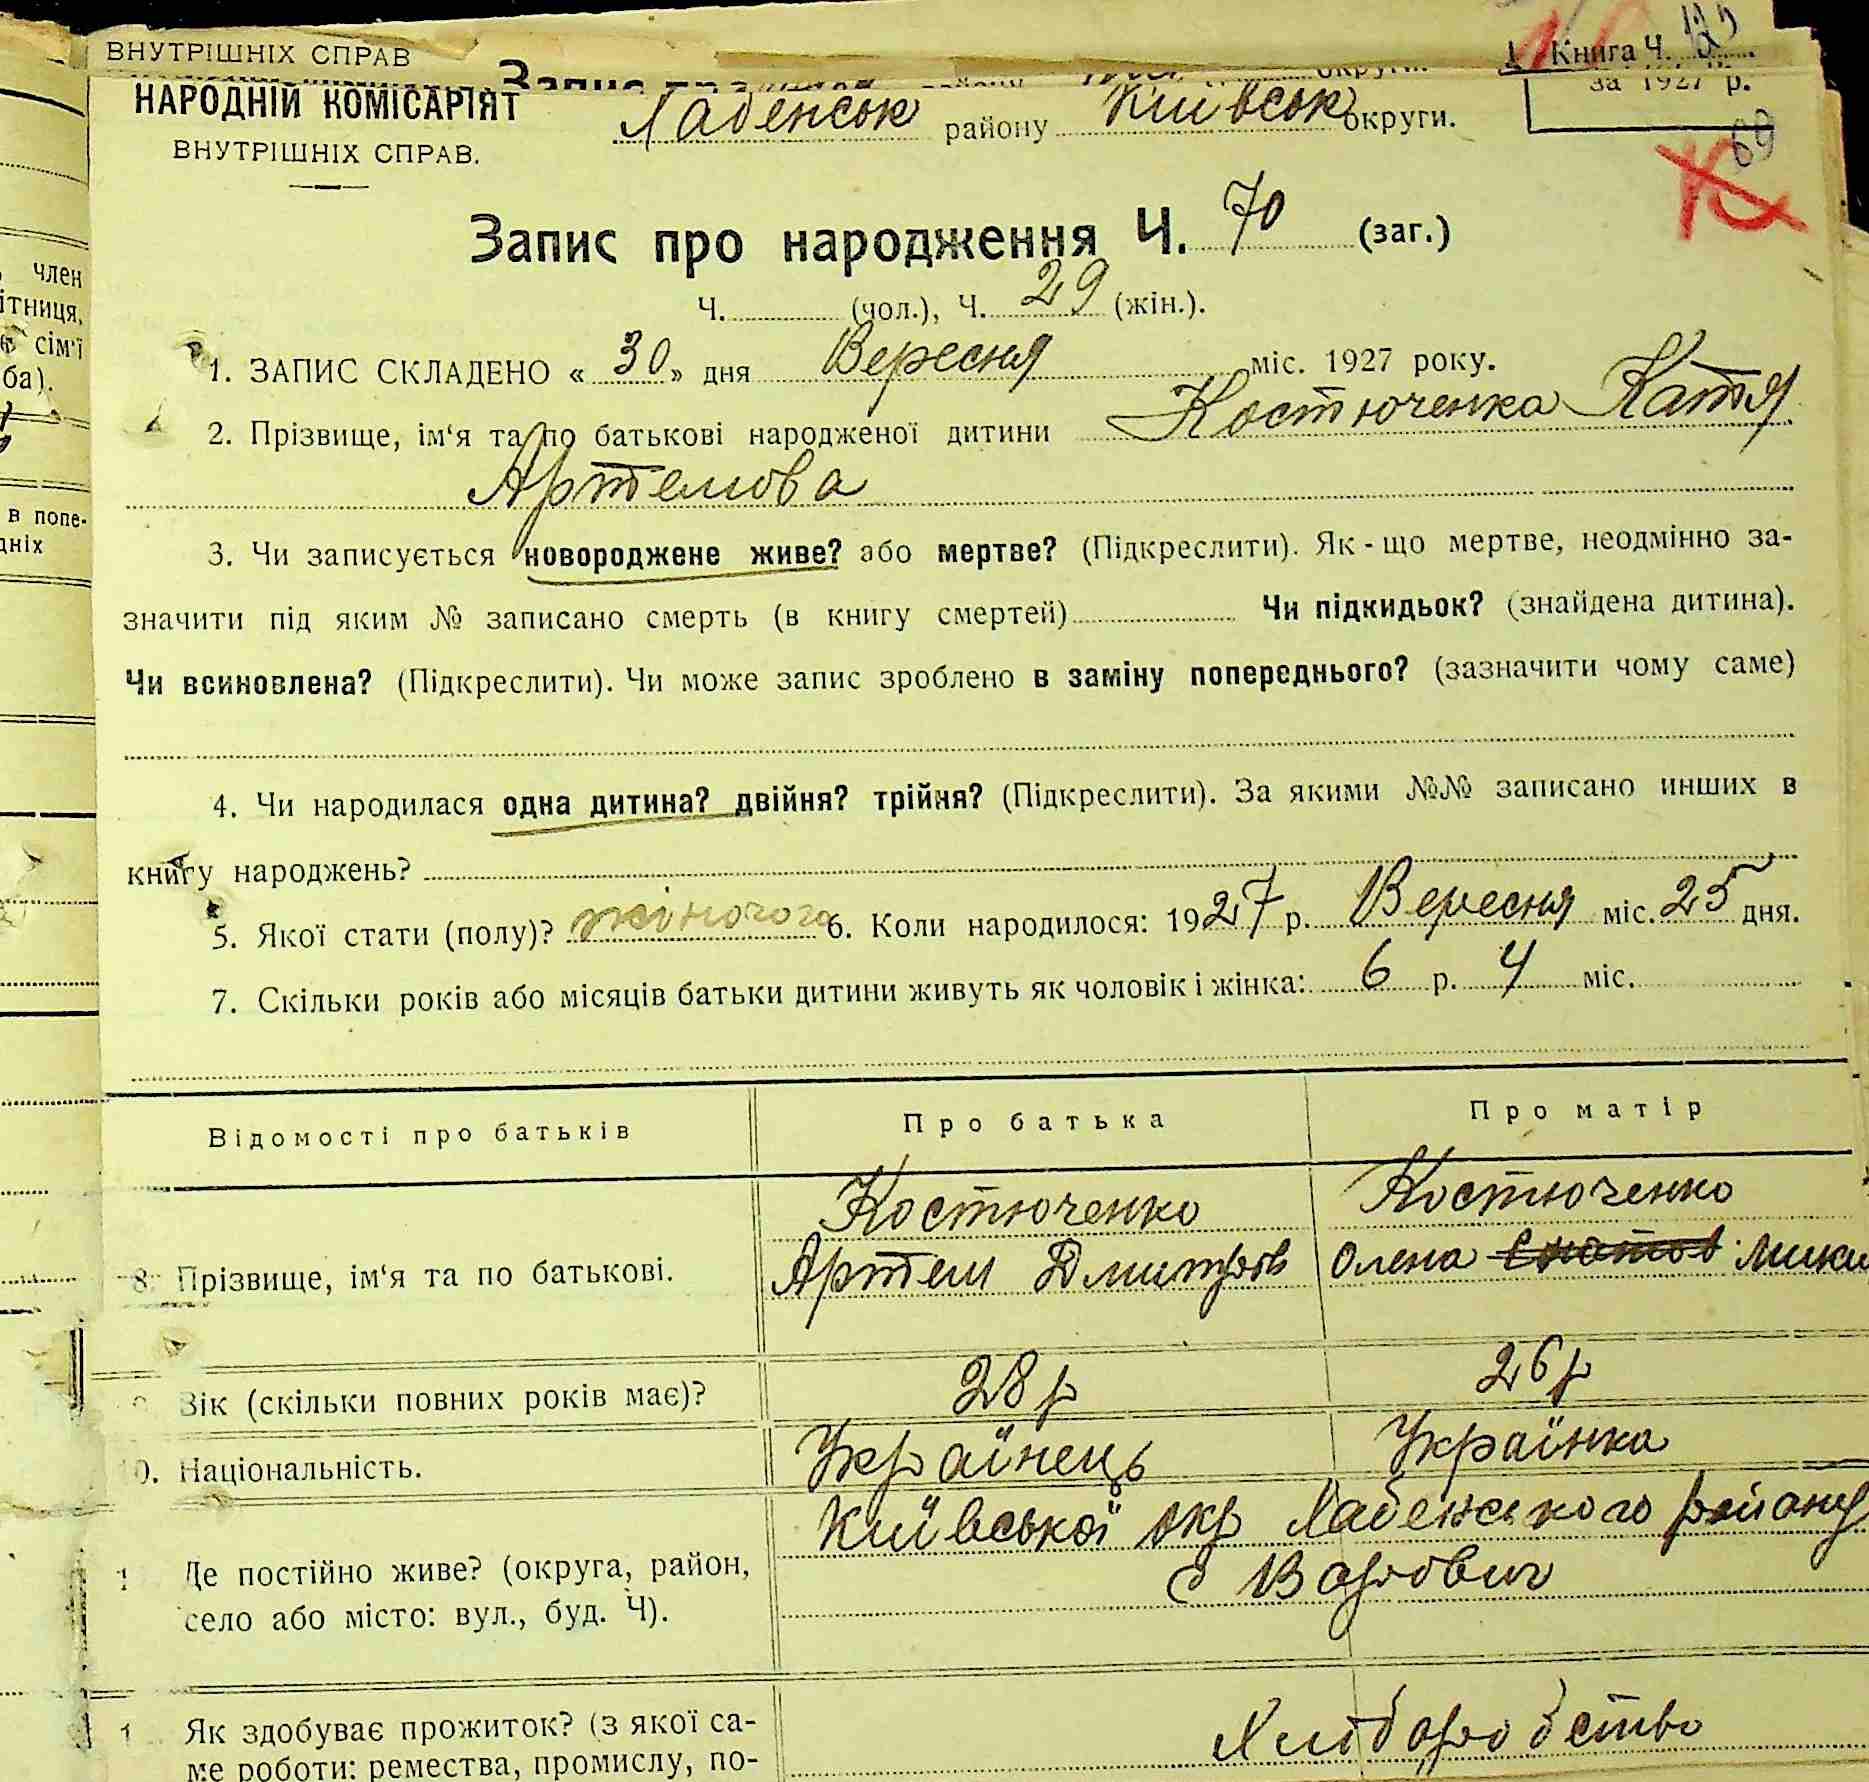 ВНУТРІШНІХ СПРАВ
Книга Ч. 125
за 1927 р.
69
НАРОДНІЙ КОМІСАРІЯТ
ВНУТРІШНІХ СПРАВ.
Хабенськ району Київськ округи.
Запис про народження Ч. 70 (заг.)
Ч. (чол.), Ч. 29 (жін.).
1. ЗАПИС СКЛАДЕНО « 30 » дня Вересня міс. 1927 року.
2. Прізвище, ім'я та по батькові народженої дитини Костюченка Катя
Артемова
3. Чи записується новороджене живе? або мертве? (Підкреслити). Як-що мертве, неодмінно за-
значити під яким № записано смерть (в книгу смертей) Чи підкидьок? (знайдена дитина).
Чи всиновлена? (Підкреслити). Чи може запис зроблено в заміну попереднього? (зазначити чому саме)
4. Чи народилася одна дитина? двійня? трійня? (Підкреслити). За якими №№ записано инших в
книгу народжень?
5. Якої стати (полу)? жіночого 6. Коли народилося: 1927 р. Вересня міс. 25 дня.
7. Скільки років або місяців батьки дитини живуть як чоловік і жінка: 6 р. 4 міс.
Відомості про батьків Про батька Про матір
Костюченко Костюченко
8. Прізвище, ім'я та по батькові. Артем Дмитров Олена Мики
Вік (скільки повних років має)? 28 р 26 р
10. Національність. Українець Українка
Київської окр Хабенського району
Де постійно живе? (округа, район, с Варович
село або місто: вул., буд. Ч).
Як здобуває прожиток? (з якої са- Хліборобство
ме роботи: ремества, промислу, по-
член
ітниця,
сім'ї
ба).
в попе-
дніх